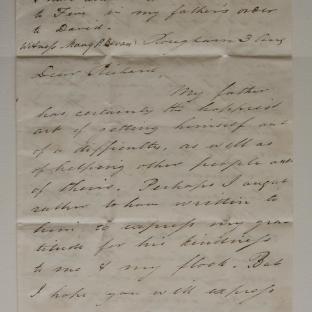 to Finn in my father's order
to David.
Witness Mary P Bevan Rougham 3 Aug
Dear Richard,
My father
has certainly the happiest
art of getting himself out
of a difficulty, as well as
of helping other people out
of theirs. Perhaps I ought
rather to have written to
him to express my gra
titude for his kindness
to me & my flock. But
I hope you will express